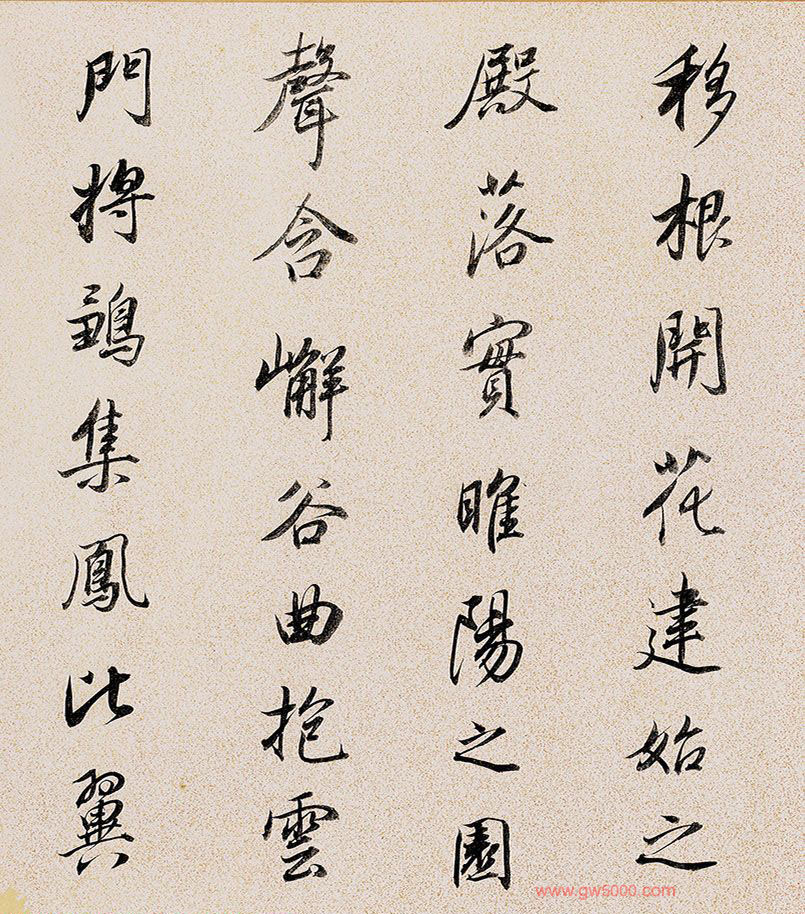 移根開花建始之
殿落實睢陽之園
聲含嶰谷曲抱雲
門將鶵集鳳比翼
www.gw5000.com